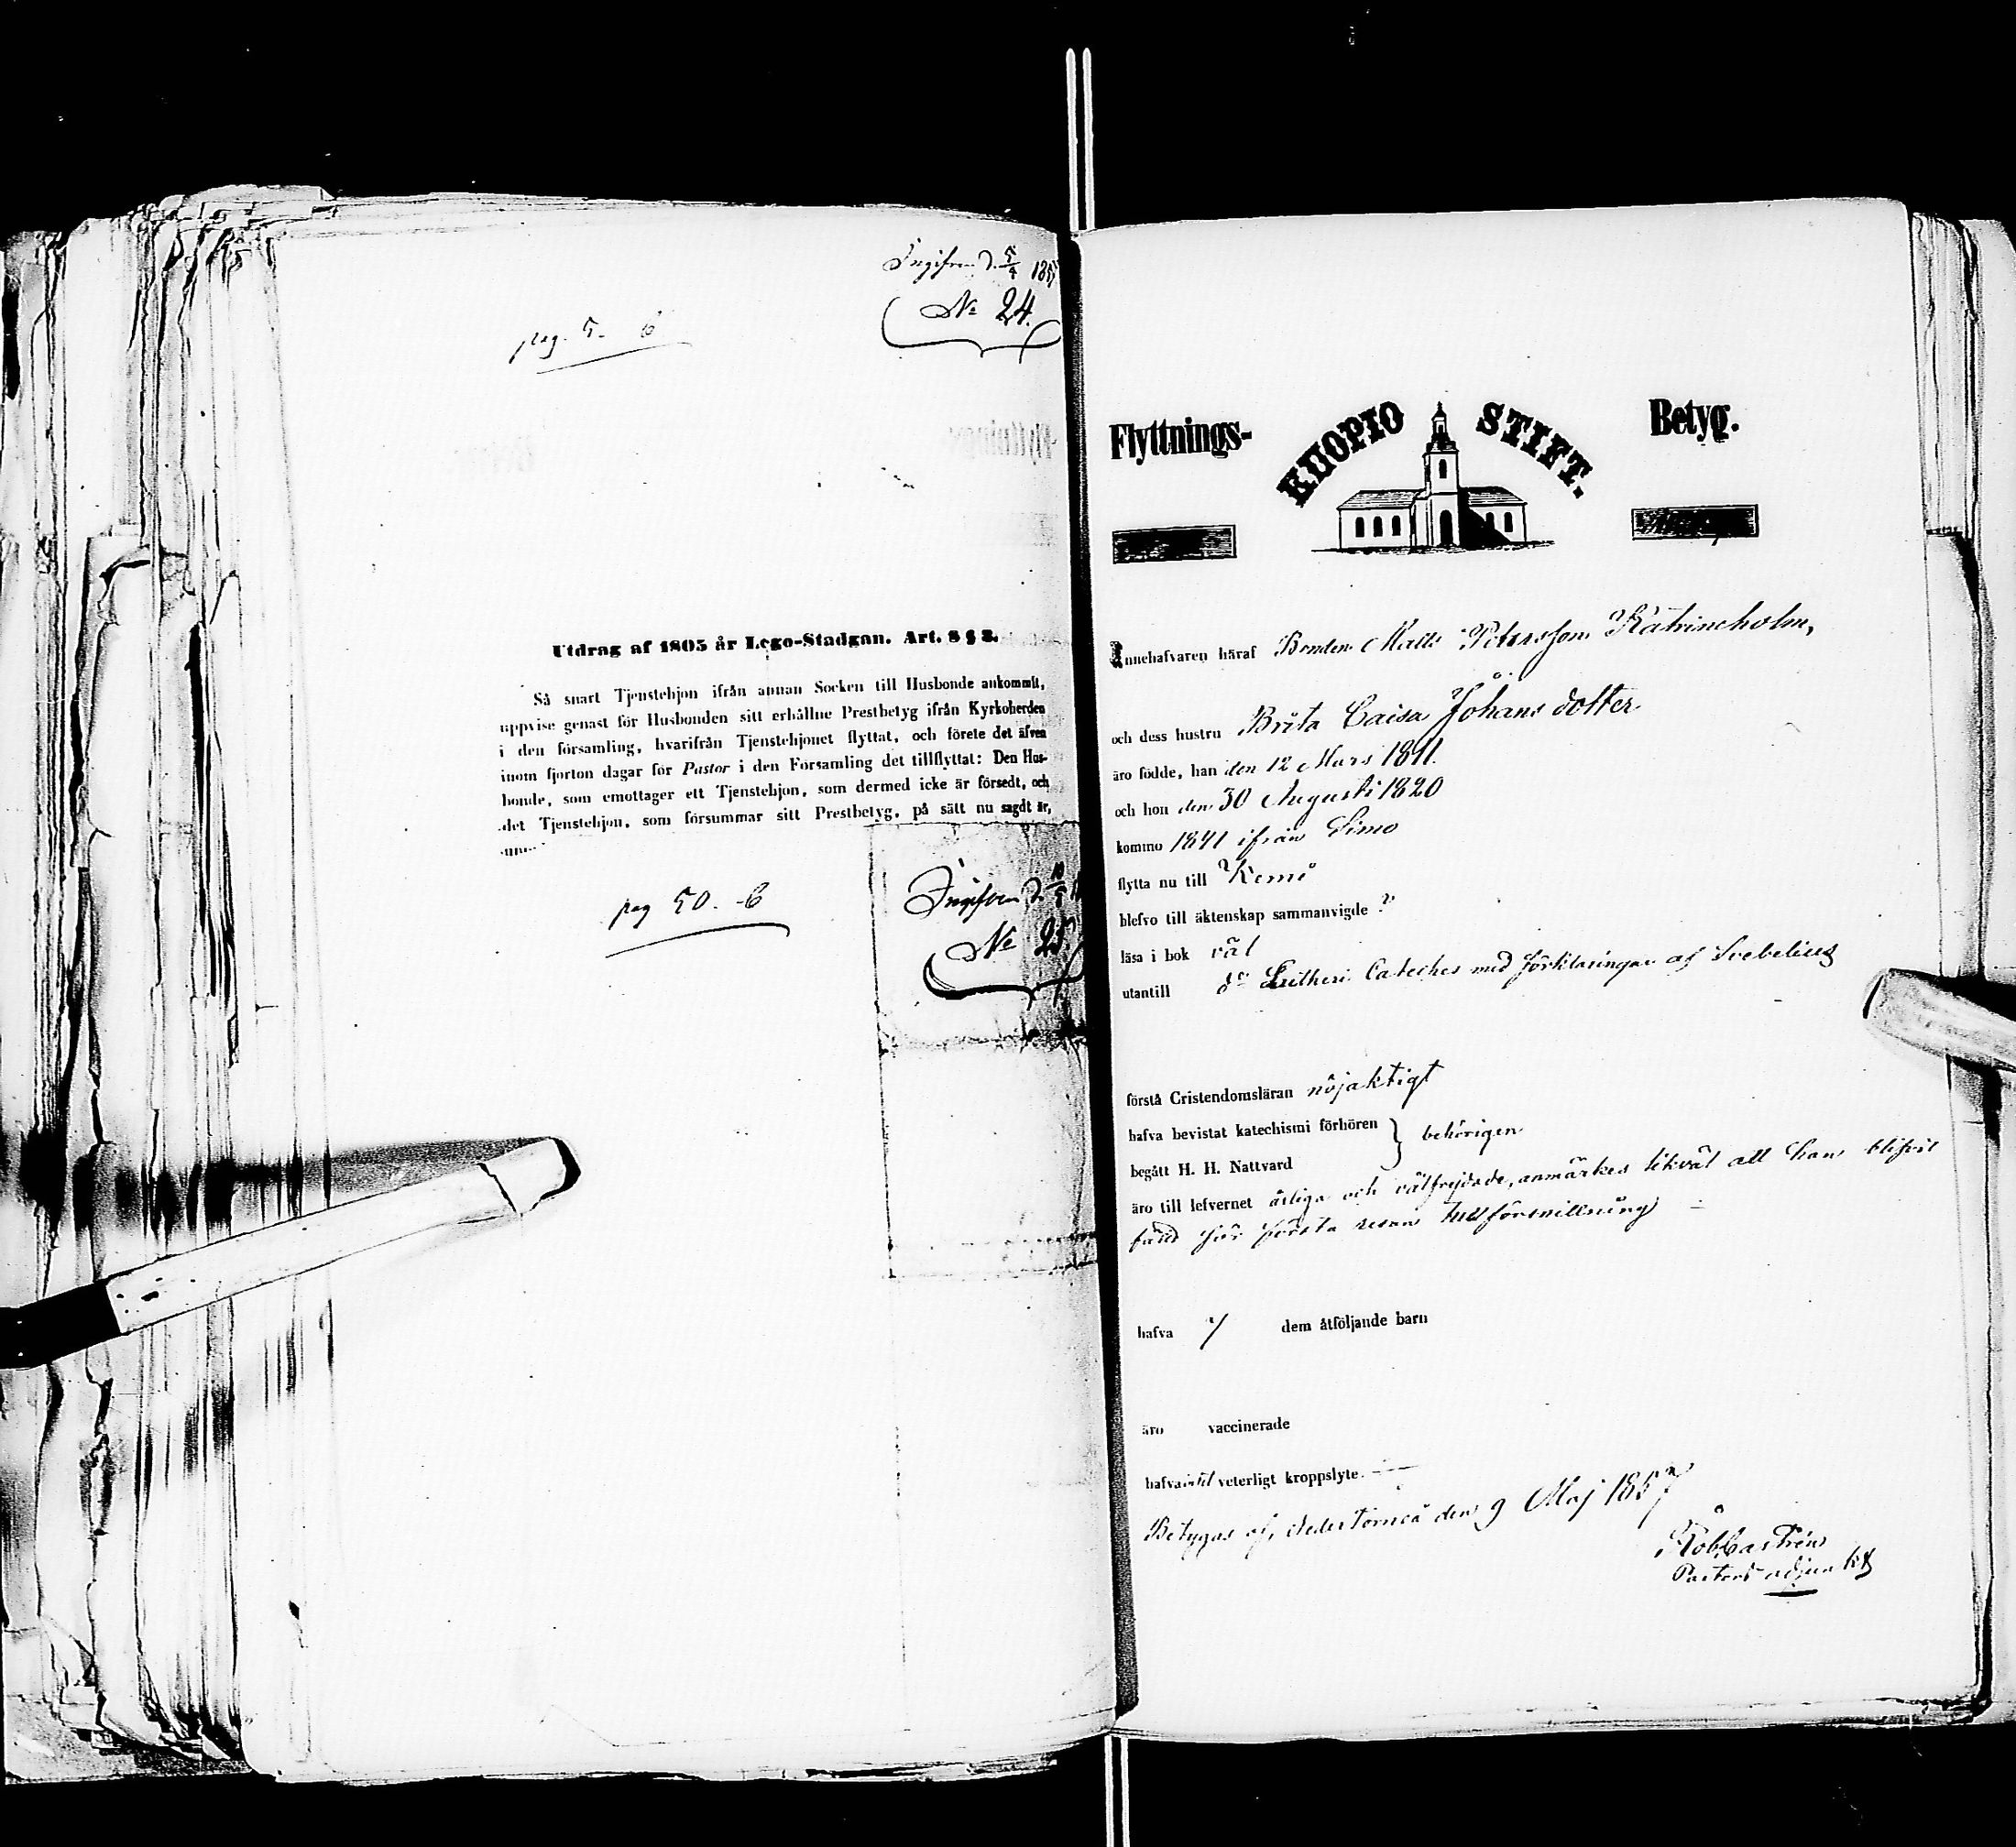 Ingifven d. 5/5 1857
№ 24.
pag. 5. 6
Utdrag af 1805 år Lego-Stadgan. Art. 8 § 2.
Så snart Tjenstehjon ifrån annan Socken till Husbonde ankommit,
uppvise genast för Husbonden sitt erhållne Prestbetyg ifrån Kyrkoherden
i den församling, hvarifrån Tjenstehjonet flyttat, och förete det äfven
inom fjorton dagar för Pastor i den Församling det tillflyttat: Den Hus-
bonde, som emottager ett Tjenstehjon, som dermed icke är försedt, och
det Tjenstehjon, som försummar sitt Prestbetyg, på sätt nu sagdt är,
Ingifven d. 10/5
№ 25.
pag 50. 6
Flyttnings- KUOPIO STIFT. Betyg.
Innehafvaren häraf Bonden Matts Petersson Katrineholm,
och dess hustru Brita Caisa Johansdotter
äro födde, han den 12 Mars 1811.
och hon den 30 Augusti 1820
kommo 1841 ifrån Simo
flytta nu till Kemi
blefvo till äktenskap sammanvigde ?
läsa i bok väl
utantill do Lutheri Cateches med förklaringar af Svebelius
förstå Cristendomsläran nöjaktigt
hafva bevistat katechismi förhören } behörigen
begått H. H. Nattvard
äro till lefvernet ärliga och välfrejdade, anmärkes likväl att han blifvit
fäld för första resan tullförsnillning
hafva / dem åtföljande barn
äro vaccinerade
hafva intet veterligt kroppslyte.
Betygas af, Neder Torneå den 9 Maj 1857
Rob. Castrén
Pastors adjunkt